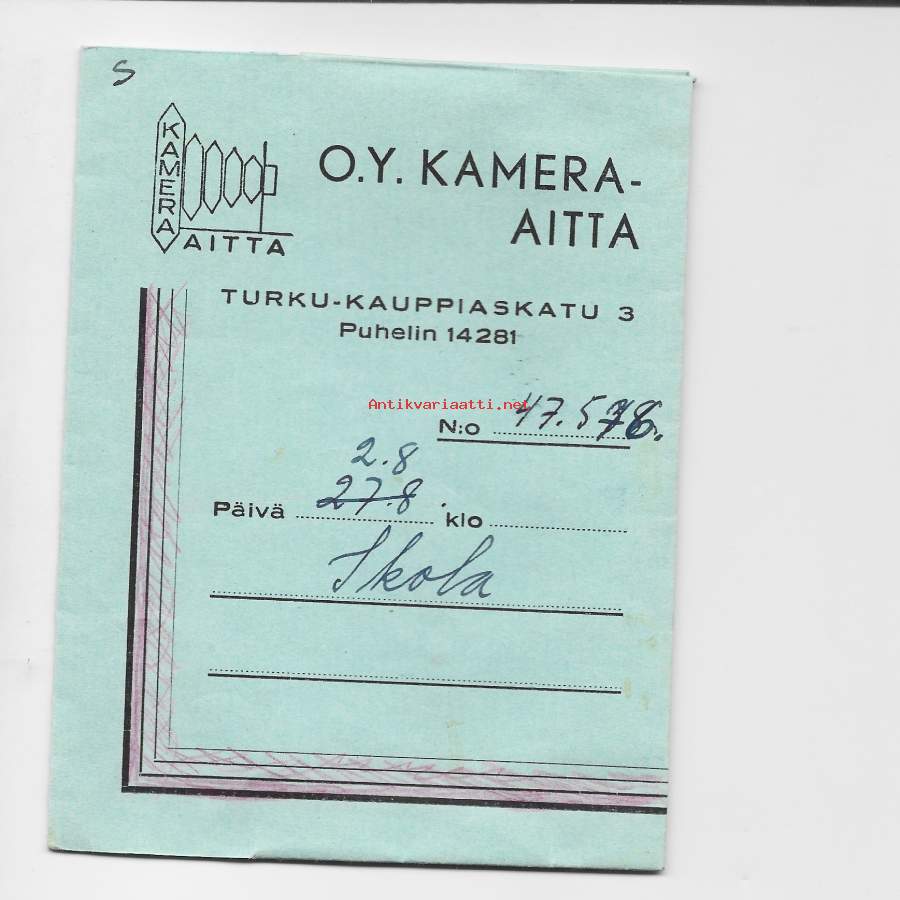 S
KAMERA
AITTA
O.Y. KAMERA-
AITTA
TURKU-KAUPPIASKATU 3
Puhelin 14281
Antikvariaatti.net
N:o 47.576.
2.8
Päivä 27.8. klo
Skola